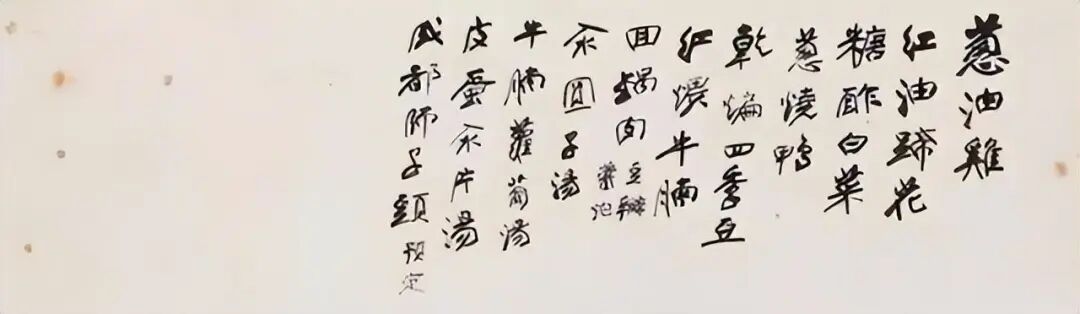 蔥油雞
紅油蹄花
糖酢白菜
蔥燒鴨
乾煸四季豆
紅燒牛腩
回鍋肉 豆瓣
汆圓子湯
牛腩蘿蔔湯
皮蛋汆片湯
成都師子頭 預定